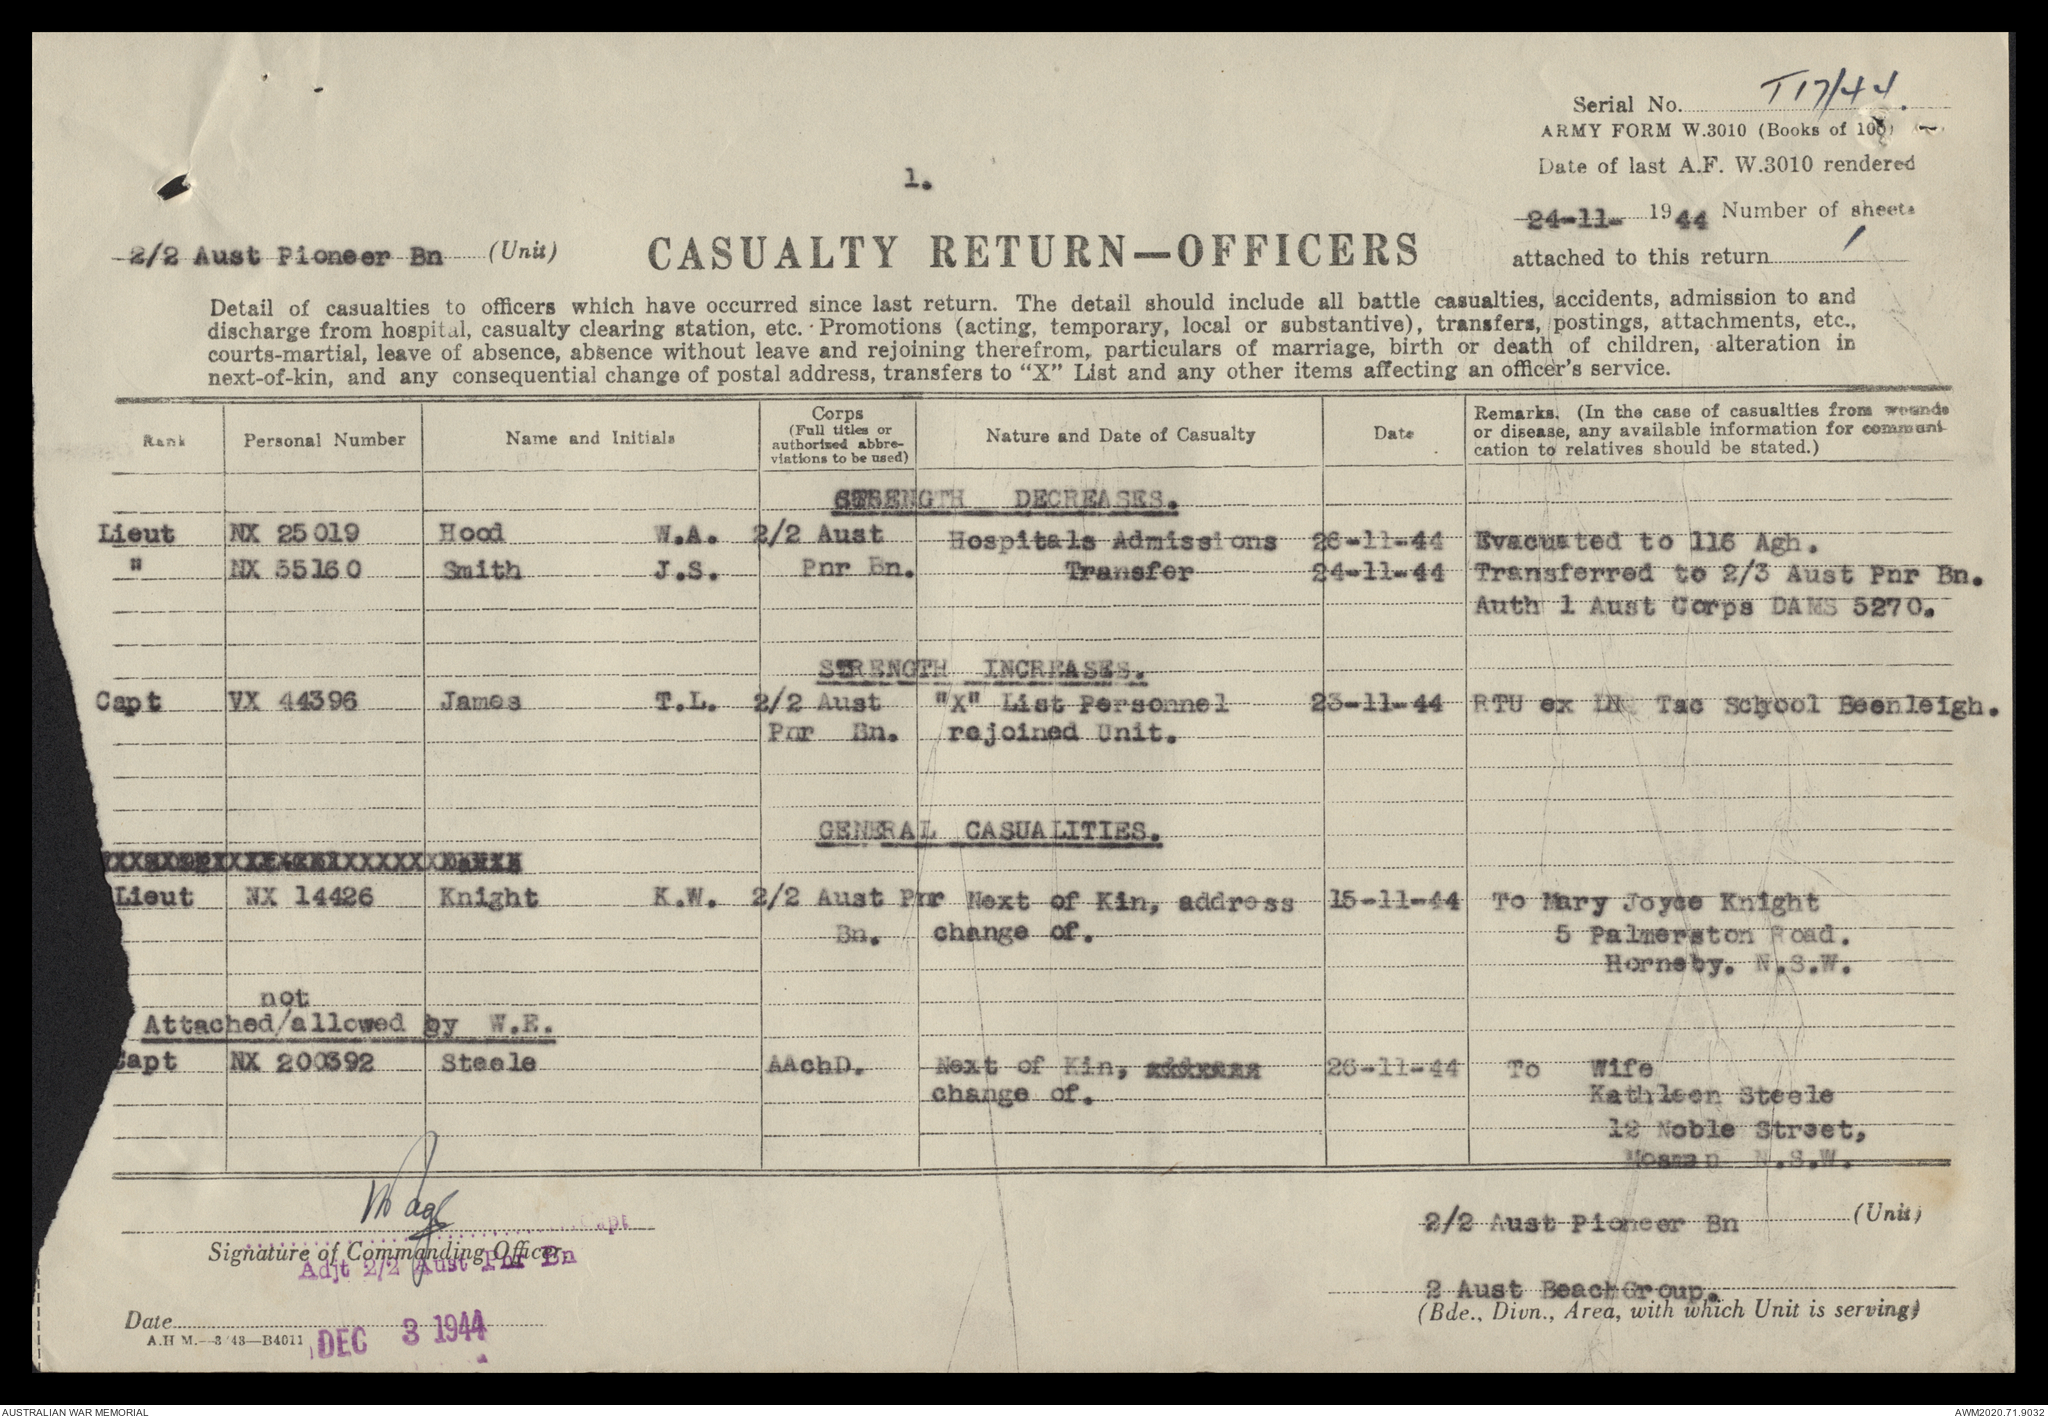 Serial No. T17/44.
ARMY FORM W.3010 (Books of 100)
Date of last A.F. W.3010 rendered
24-11- 1944 Number of sheets
attached to this return 1
1.
2/2 Aust Pioneer Bn (Unit)
CASUALTY RETURN—OFFICERS
Detail of casualties to officers which have occurred since last return. The detail should include all battle casualties, accidents, admission to and
discharge from hospital, casualty clearing station, etc. Promotions (acting, temporary, local or substantive), transfers, postings, attachments, etc.,
courts-martial, leave of absence, absence without leave and rejoining therefrom, particulars of marriage, birth or death of children, alteration in
next-of-kin, and any consequential change of postal address, transfers to "X" List and any other items affecting an officer's service.
Rank Personal Number Name and Initials Corps (Full titles or authorized abbreviations to be used) Nature and Date of Casualty Date Remarks. (In the case of casualties from wounds
or disease, any available information for communi-
cation to relatives should be stated.)
STRENGTH DECREASES.
Lieut NX 25019 Hood W.A. 2/2 Aust Hospitals Admissions 26-11-44 Evacuated to 116 Agh.
" NX 35160 Smith J.S. Pnr Bn. Transfer 24-11-44 Transferred to 2/3 Aust Pnr Bn.
Auth 1 Aust Corps DAMS 5270.
STRENGTH INCREASES.
Capt VX 44396 James T.L. 2/2 Aust "X" List Personnel 23-11-44 RTU ex LN Tac School Beenleigh.
Pnr Bn. rejoined Unit.
GENERAL CASUALITIES.
Lieut NX 14426 Knight K.W. 2/2 Aust Pnr Next of Kin, address 15-11-44 To Mary Joyce Knight
Bn. change of. 5 Palmerston Road.
Hornsby. N.S.W.
not
Attached/allowed by W.E.
Capt NX 200392 Steele AAchD. Next of Kin, 26-11-44 To Wife
change of. Kathleen Steele
12 Noble Street,
Mosman N.S.W.
Capt
Signature of Commanding Officer
Adjt 2/2 Aust Pnr Bn
2/2 Aust Pioneer Bn (Unit)
2 Aust Beach Group.
(Bde., Divn., Area, with which Unit is serving)
Date DEC 3 1944
A.H M.—3/43—B4011
AUSTRALIAN WAR MEMORIAL
AWM2020.71.9032